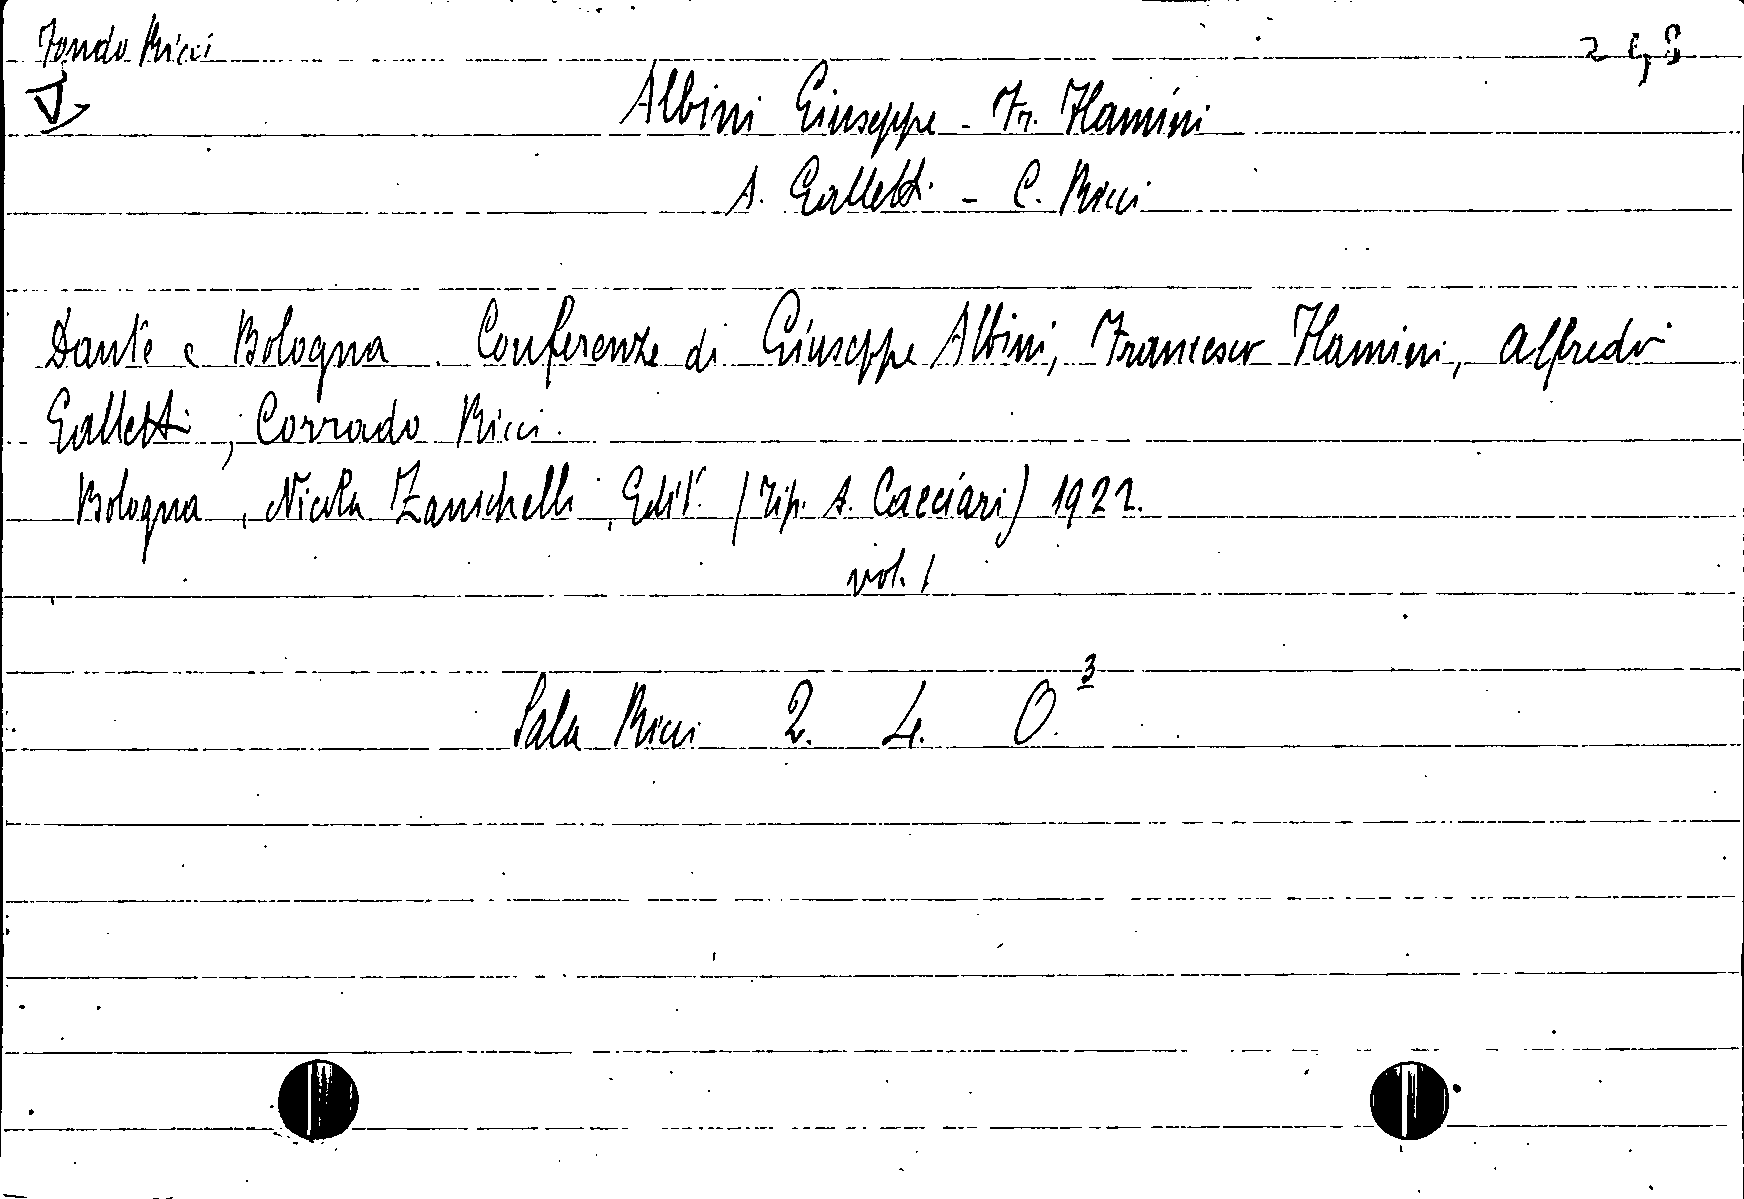 Fondo Ricci
Albini Giuseppe - Fr. Flamini
A. Galletti - C. Ricci
Dante e Bologna. Conferenze di Giuseppe Albini, Francesco Flamini, Alfredo
Galletti, Corrado Ricci.
Bologna, Nicola Zanichelli, Edit. (Tip. A. Cacciari) 1922.
vol. 1
Sala Ricci 2. 4. O.3